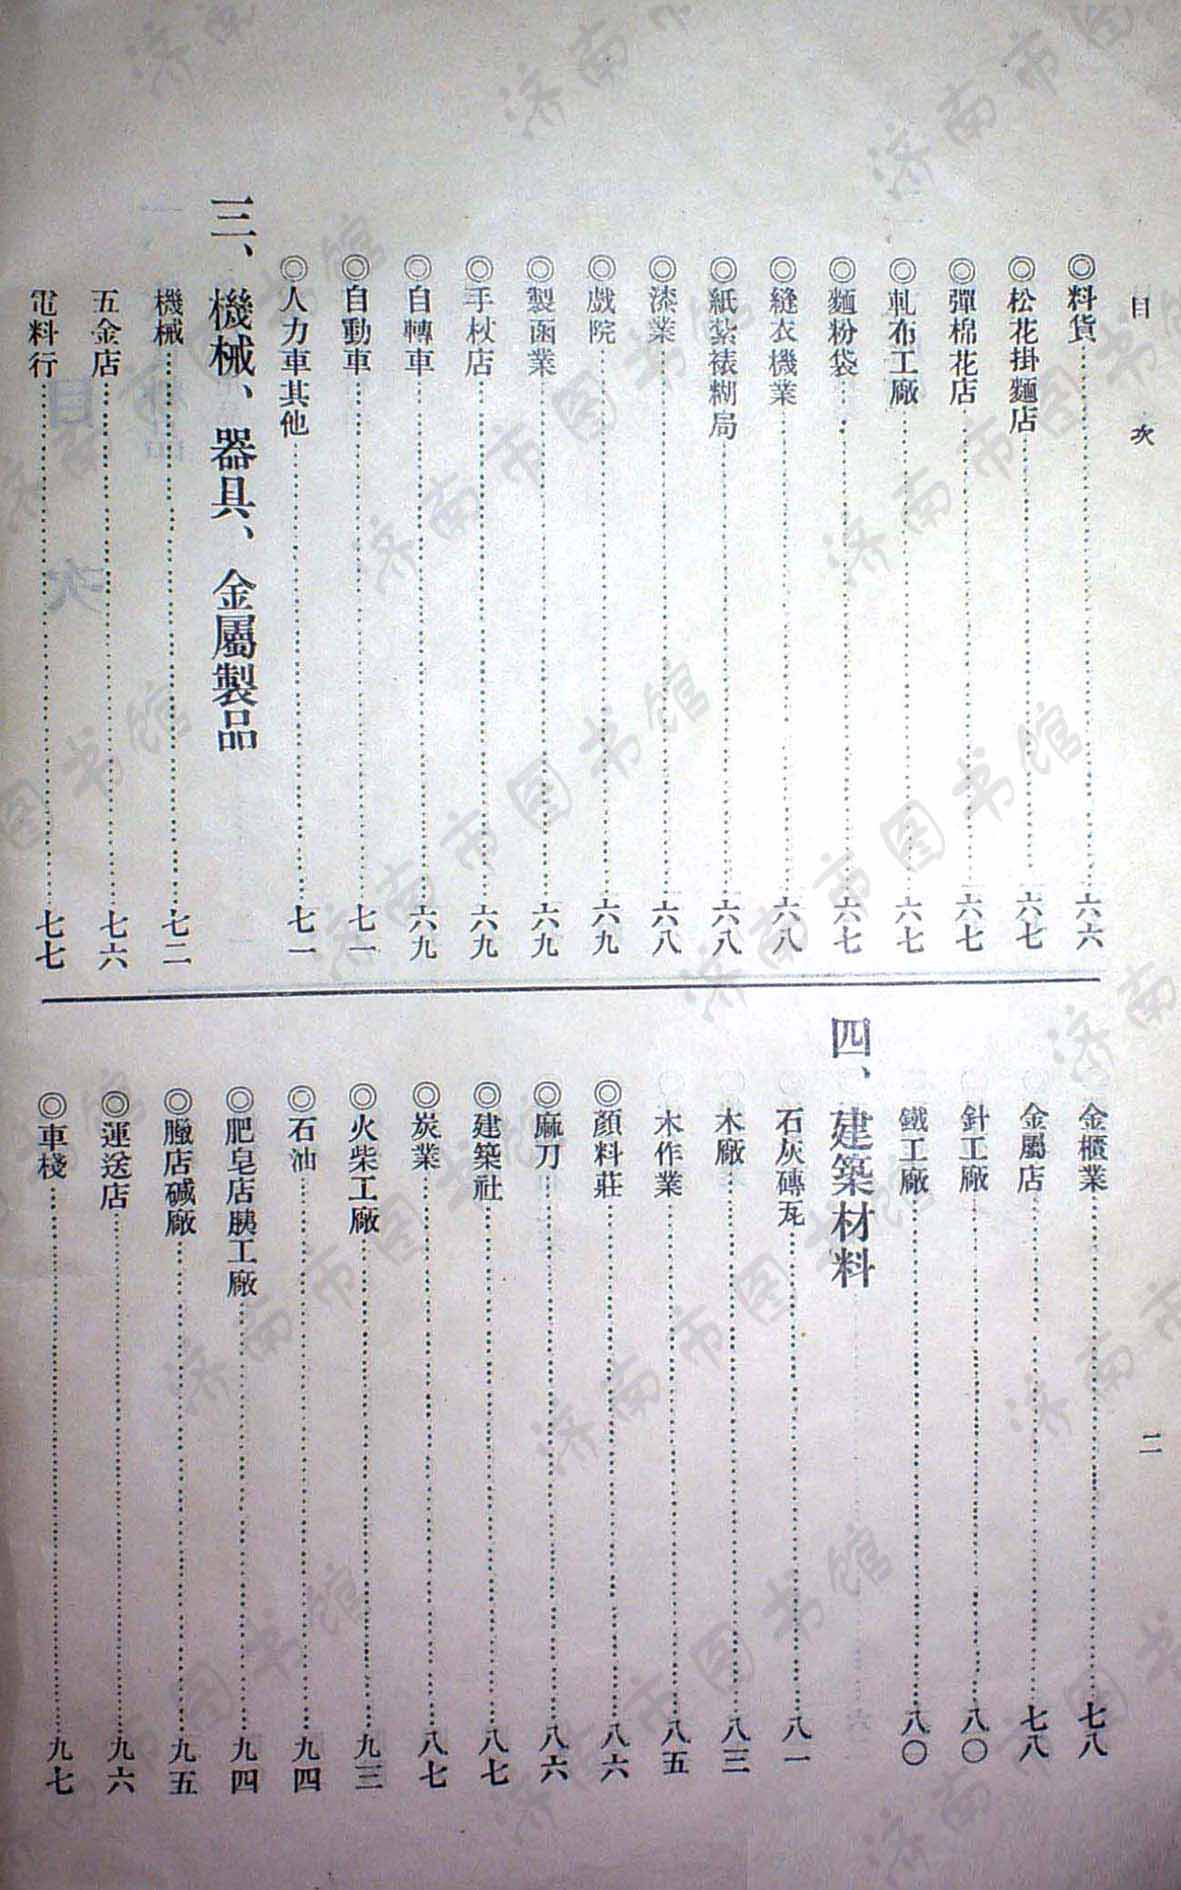 目次
二
◎料貨……六六
◎松花掛麵店……六七
◎彈棉花店……六七
◎軋布工廠……六七
◎麵粉袋……六七
◎縫衣機業……六八
◎紙紮裱糊局……六八
◎漆業……六八
◎戲院……六九
◎製函業……六九
◎手杖店……六九
◎自轉車……六九
◎自動車……七一
◎人力車其他……七一
三、機械、器具、金屬製品
機械……七二
五金店……七六
電料行……七七
金櫃業……七八
金屬店……七八
針工廠……八〇
鐵工廠……八〇
四、建築材料
石灰磚瓦……八一
木廠……八三
木作業……八五
◎顏料莊……八六
◎麻刀……八六
◎建築社……八七
◎炭業……八七
◎火柴工廠……九三
◎石油……九四
◎肥皂店胰工廠……九四
◎臘店碱廠……九五
◎運送店……九六
◎車棧……九七
济南市图书馆